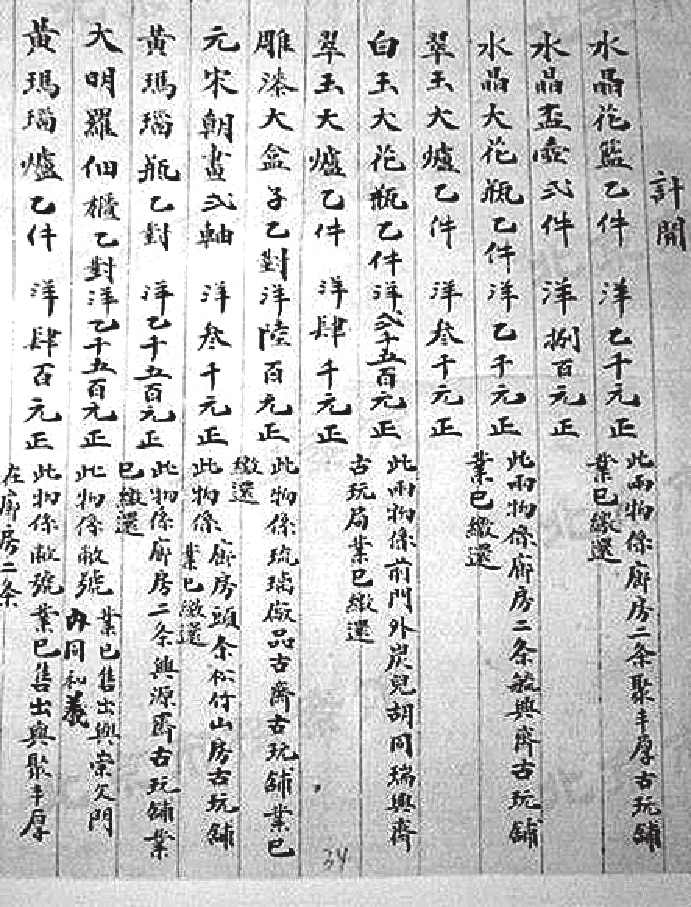 計開
水晶花籃乙件 洋乙千元正 此兩物係廊房二条聚丰厚古玩舖
業已繳還
水晶盃壺弍件 洋捌百元正
水晶大花瓶乙件 洋乙千元正 此兩物係廊房二条毓興齋古玩舖
業已繳還
翠玉大爐乙件 洋叁千元正
白玉大花瓶乙件 洋弍千五百元正 此兩物係前門外炭兒胡同瑞興齋
古玩局業已繳還
翠玉大爐乙件 洋肆千元正
雕漆大盒子乙對 洋陸百元正 此物係琉璃廠品古齋古玩舖業已
繳還
元宋朝畫弍軸 洋叁千元正 此物係廊房頭条松竹山房古玩舖
業已繳還
黃瑪瑙瓶乙對 洋乙千五百元正 此物係廊房二条興源齋古玩舖業
已繳還
大明羅佃櫃乙對 洋乙千五百元正 此物係敝號業已售出與崇文門
內同和義
黃瑪瑙爐乙件 洋肆百元正 此物係敝號業已售出與聚丰厚
在廊房二条
34